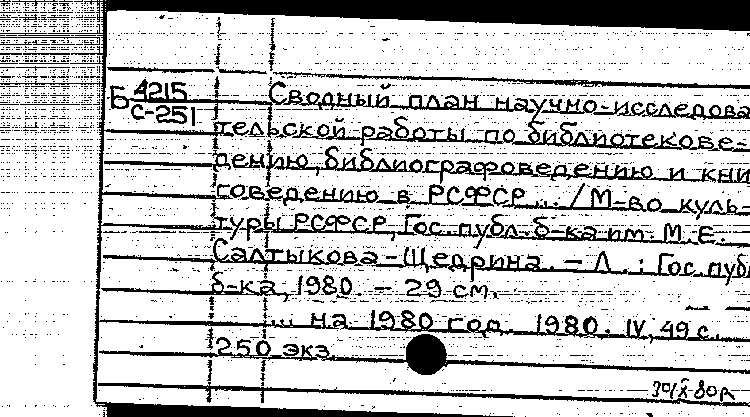 Б 4215
с-251
Сводный план научно-исследова
тельской работы по библиотекове-
дению, библиографоведению и кни
говедению в РСФСР... / М-во куль-
туры РСФСР, Гос. публ. б-ка им. М.Е.
Салтыкова-Щедрина. - Л.: Гос. публ
б-ка, 1980. - 29 см.
... на 1980 год. 1980. IV, 49 с.
250 экз.